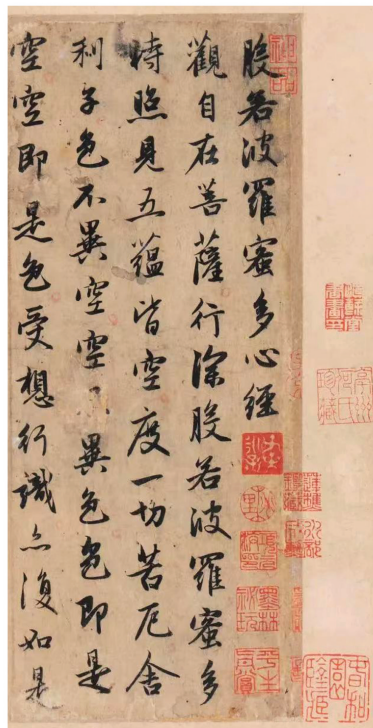 般若波羅蜜多心經
觀自在菩薩行深般若波羅蜜多
時照見五蘊皆空度一切苦厄舍
利子色不異空空不異色色即是
空空即是色受想行識亦復如是
墨林祕玩
平生真賞